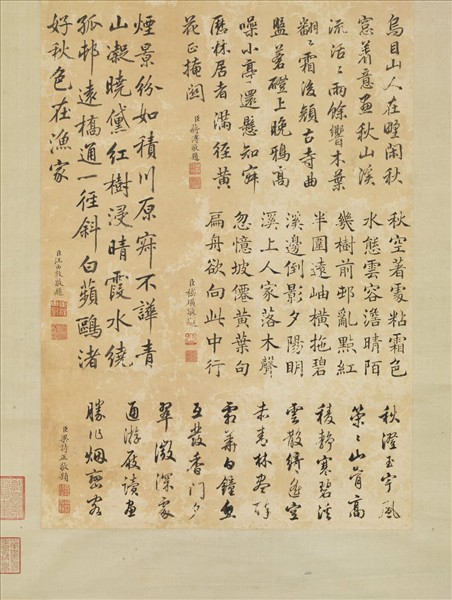 烏目山人在野閑秋
窓着意畫秋山溪
流活〻雨餘響木葉
翻〻霜後穎古寺曲
盤蒼磴上晚鴉高
噪小亭還懸知寂
歷林居者滿徑黃
花正掩關
臣蔣溥敬題
秋空著處粘霜色
水態雲容澹晴陌
幾樹前邨亂點紅
半圍遠岫橫拖碧
溪邊倒影夕陽明
溪上人家落木聲
忽憶坡僊黃葉句
扁舟欲向此中行
臣嵇璜敬題
煙景紛如積川原寂不譁青
山凝曉黛紅樹浸晴霞水繞
孤邨遠橋通一徑斜白蘋鷗渚
好秋色在漁家
臣汪由敦敬題
秋澄玉宇風
策〻山骨高
稜靜寒碧溪
雲散綺遙空
赤青林盡醉
霜華白鐘魚
互發香門夕
翠微深處
通游屐讀畫
勝作烟巒客
臣梁詩正敬題